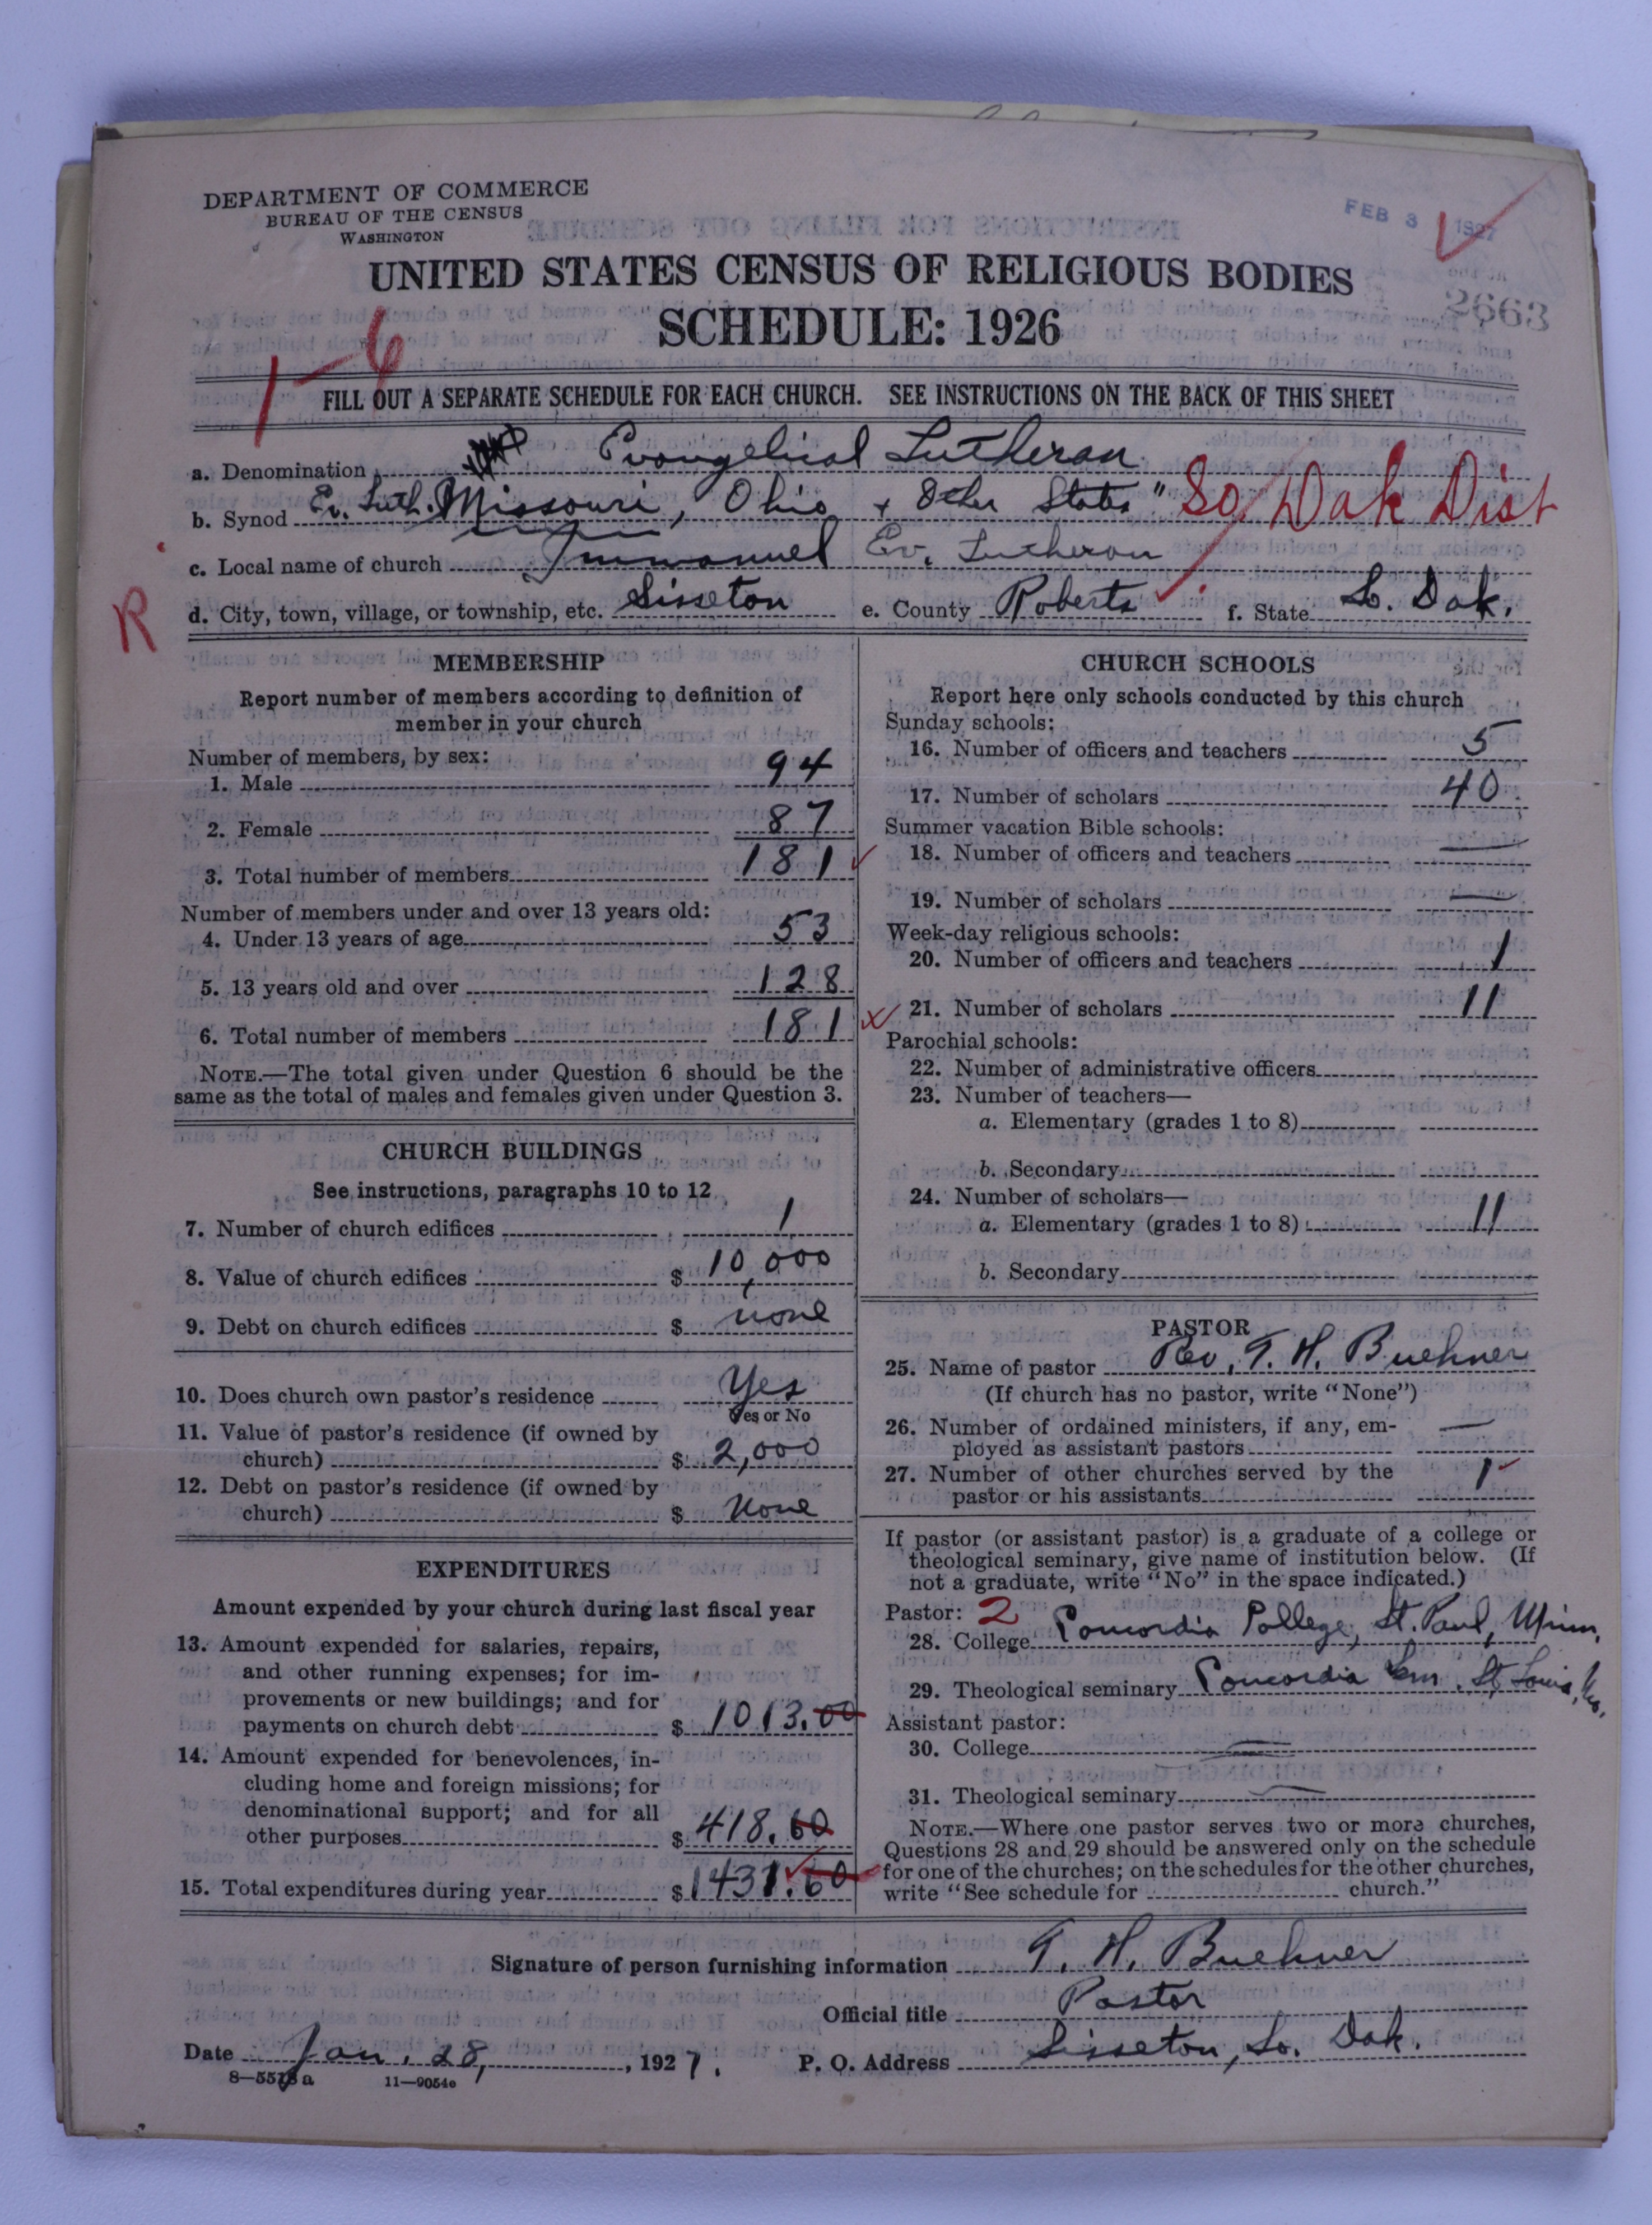 DEPARTMENT OF COMMERCE
BUREAU OF THE CENSUS
WASHINGTON
FEB 3 1927
UNITED STATES CENSUS OF RELIGIOUS BODIES
2663
SCHEDULE: 1926
1-6
FILL OUT A SEPARATE SCHEDULE FOR EACH CHURCH. SEE INSTRUCTIONS ON THE BACK OF THIS SHEET
a. Denomination Evangelical Lutheran
b. Synod Ev. Luth. Missouri, Ohio + Other States" So. Dak Dist
c. Local name of church Immanuel Ev. Lutheran
R
d. City, town, village, or township, etc. Sisseton e. County Roberts f. State So. Dak.
MEMBERSHIP
Report number of members according to definition of
member in your church
Number of members, by sex:
1. Male 94
2. Female 87
3. Total number of members 181
Number of members under and over 13 years old:
4. Under 13 years of age 53
5. 13 years old and over 128
6. Total number of members 181
NOTE.—The total given under Question 6 should be the
same as the total of males and females given under Question 3.
CHURCH BUILDINGS
See instructions, paragraphs 10 to 12
7. Number of church edifices 1
8. Value of church edifices $ 10,000
9. Debt on church edifices $ none
10. Does church own pastor's residence Yes
Yes or No
11. Value of pastor's residence (if owned by
church) $ 2,000
12. Debt on pastor's residence (if owned by
church) $ None
EXPENDITURES
Amount expended by your church during last fiscal year
13. Amount expended for salaries, repairs,
and other running expenses; for im-
provements or new buildings; and for
payments on church debt $ 1013.00
14. Amount expended for benevolences, in-
cluding home and foreign missions; for
denominational support; and for all
other purposes $ 418.60
15. Total expenditures during year $ 1431.60
CHURCH SCHOOLS
Report here only schools conducted by this church
Sunday schools:
16. Number of officers and teachers 5
17. Number of scholars 40
Summer vacation Bible schools:
18. Number of officers and teachers —
19. Number of scholars —
Week-day religious schools:
20. Number of officers and teachers 1
21. Number of scholars 11
Parochial schools:
22. Number of administrative officers
23. Number of teachers—
a. Elementary (grades 1 to 8)
b. Secondary
24. Number of scholars—
a. Elementary (grades 1 to 8) 11
b. Secondary
PASTOR
25. Name of pastor Rev. T. H. Buehner
(If church has no pastor, write "None")
26. Number of ordained ministers, if any, em-
ployed as assistant pastors —
27. Number of other churches served by the
pastor or his assistants 1
If pastor (or assistant pastor) is a graduate of a college or
theological seminary, give name of institution below. (If
not a graduate, write "No" in the space indicated.)
Pastor: 2
28. College Concordia College, St. Paul, Minn.
29. Theological seminary Concordia Sem. St. Louis, Mo.
Assistant pastor:
30. College —
31. Theological seminary —
NOTE.—Where one pastor serves two or more churches,
Questions 28 and 29 should be answered only on the schedule
for one of the churches; on the schedules for the other churches,
write "See schedule for church."
Signature of person furnishing information T. H. Buehner
Official title Pastor
Date Jan. 28, 1927. P. O. Address Sisseton, So. Dak.
8—5513a 11—9054c